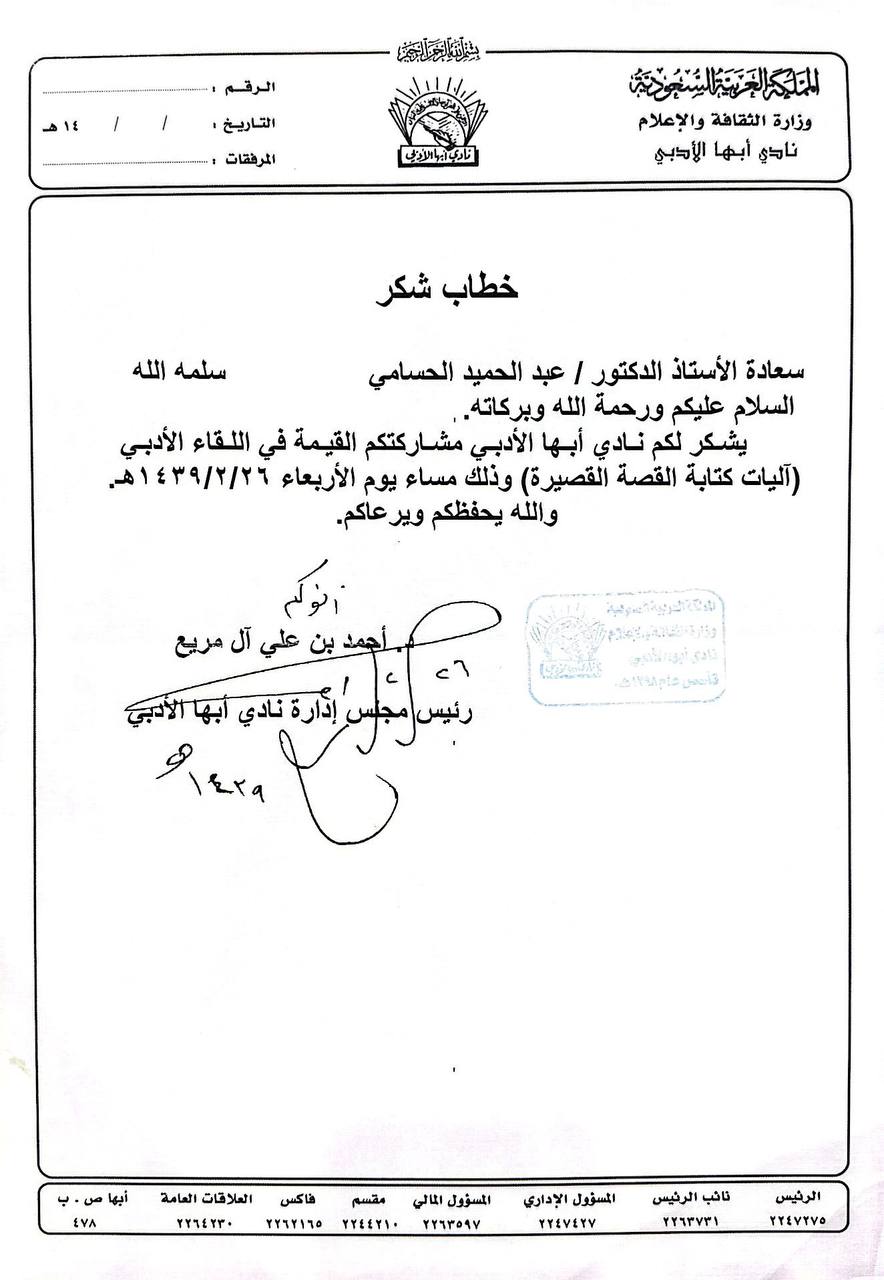 بسم الله الرحمن الرحيم
المملكة العربية السعودية
وزارة الثقافة والإعلام
نادي أبها الأدبي
نادي أبها الأدبي
الرقـم :
التاريخ : / / ١٤ هـ
المرفقات :
خطاب شكر
سعادة الأستاذ الدكتور / عبد الحميد الحسامي سلمه الله
السلام عليكم ورحمة الله وبركاته.
يشكر لكم نادي أبها الأدبي مشاركتكم القيمة في اللقاء الأدبي
(آليات كتابة القصة القصيرة) وذلك مساء يوم الأربعاء ١٤٣٩/٢/٢٦هـ.
والله يحفظكم ويرعاكم.
أخوكم
د. أحمد بن علي آل مريع
رئيس مجلس إدارة نادي أبها الأدبي
المملكة العربية السعودية
وزارة الثقافة والإعلام
نادي أبها الأدبي
الرئيس نائب الرئيس المسؤول الإداري المسؤول المالي مقسم فاكس العلاقات العامة أبها ص . ب
٢٢٤٧٢٧٥ ٢٢٦٣٧٣١ ٢٢٤٧٤٢٧ ٢٢٦٣٥٩٧ ٢٢٤٤٢١٠ ٢٢٦٢١٦٥ ٢٢٦٤٢٣٠ ٤٧٨